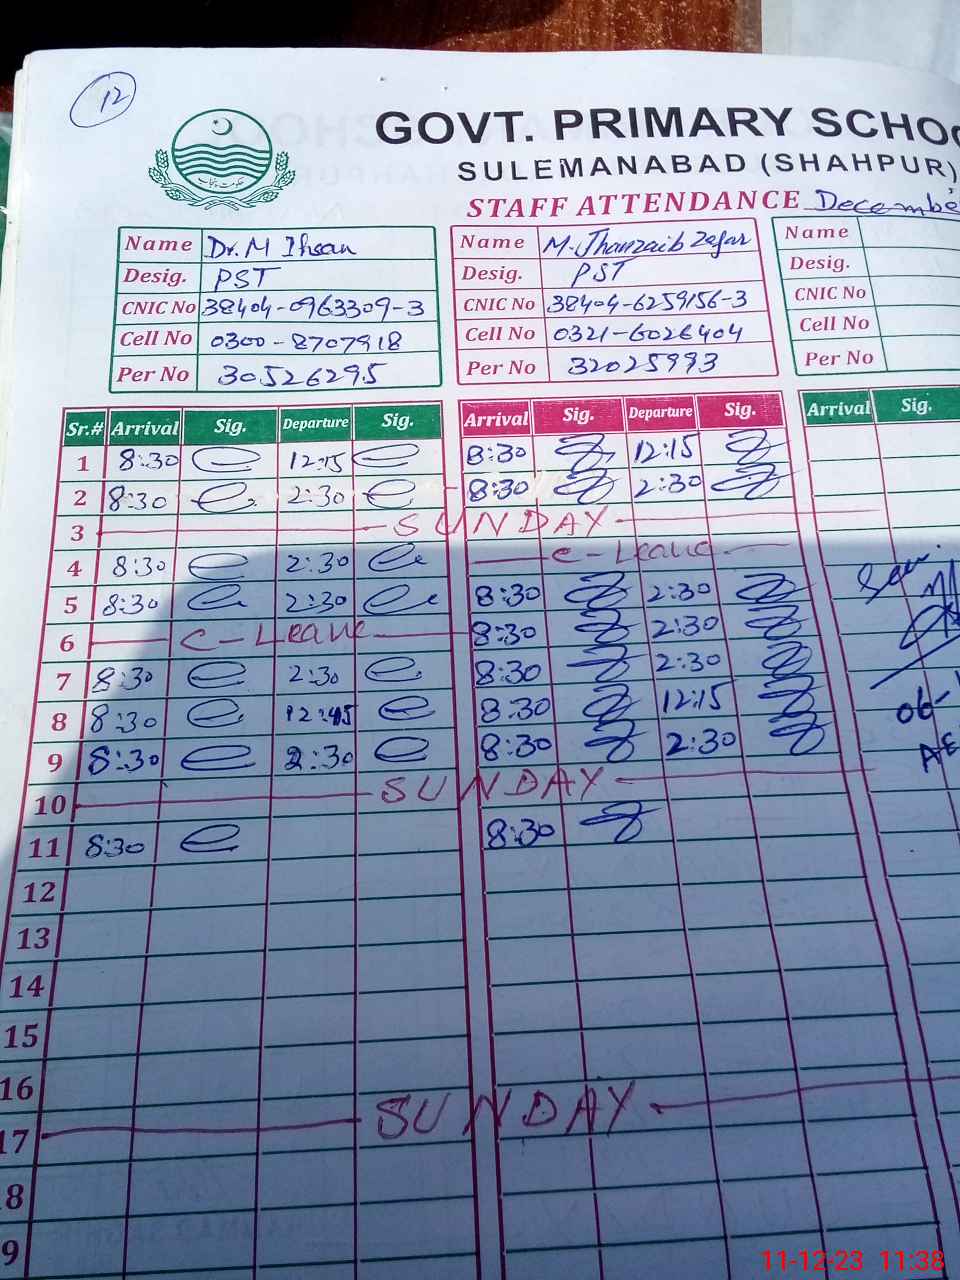 12
GOVT. PRIMARY SCHOO
SULEMANABAD (SHAHPUR)
STAFF ATTENDANCE Decembe
Name Dr. M Ihsan
Desig. PST
CNIC No 38404-0963309-3
Cell No 0300-8707918
Per No 30526295
Name M. Jhanzaib Zafar
Desig. PST
CNIC No 38404-6259156-3
Cell No 0321-6026404
Per No 32025993
Name
Desig.
CNIC No
Cell No
Per No
Sr.# Arrival Sig. Departure Sig. Arrival Sig. Departure Sig. Arrival Sig.
1 8:30 12:15 8:30 12:15
2 8:30 2:30 8:30 2:30
3 SUNDAY
4 8:30 2:30 C-Leave
5 8:30 2:30 8:30 2:30
6 C-Leave 8:30 2:30
7 8:30 2:30 8:30 2:30
8 8:30 12:45 8:30 12:15
9 8:30 2:30 8:30 2:30
10 SUNDAY
11 8:30 8:30
12
13
14
15
16
17 SUNDAY
8
9
06-
AE
11-12-23 11:38